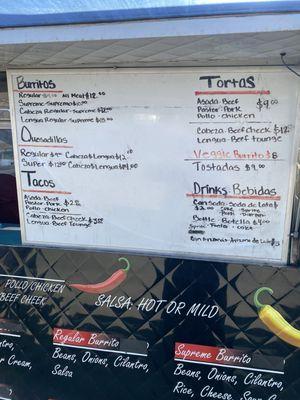 Burritos
Regular $9.00 All Meat $12.00
Supreme $10.00
Cabeza Regular
Lengua Regular Supreme $13.00
Quesadillas
Regular $9 Cabeza & Lengua $12.00
Super $12.00 Cabeza & Lengua
Tacos
Asada-Beef
Pastor-Pork
Pollo-chicken
Cabeza-Beef Cheek
Lengua Beef Tounge
Tortas
Asada-Beef $9.00
Pastor-Pork
Pollo-chicken
Cabeza-Beef cheek $12.00
Lengua-Beef tounge
Veggie Burrito $8
Tostadas $9.00
Drinks-Bebidas
Can Soda-Soda de Lata
$2.00 Coke Sprite
Bottle-Botella $4.00
Fanta Coke
POLLO/CHICKEN
BEEF CHEEK
SALSA: HOT OR MILD
Regular Burrito
Beans, Onions, Cilantro,
Salsa
Supreme Burrito
Beans, Onions, Cilantro,
Rice, Cheese, Sour